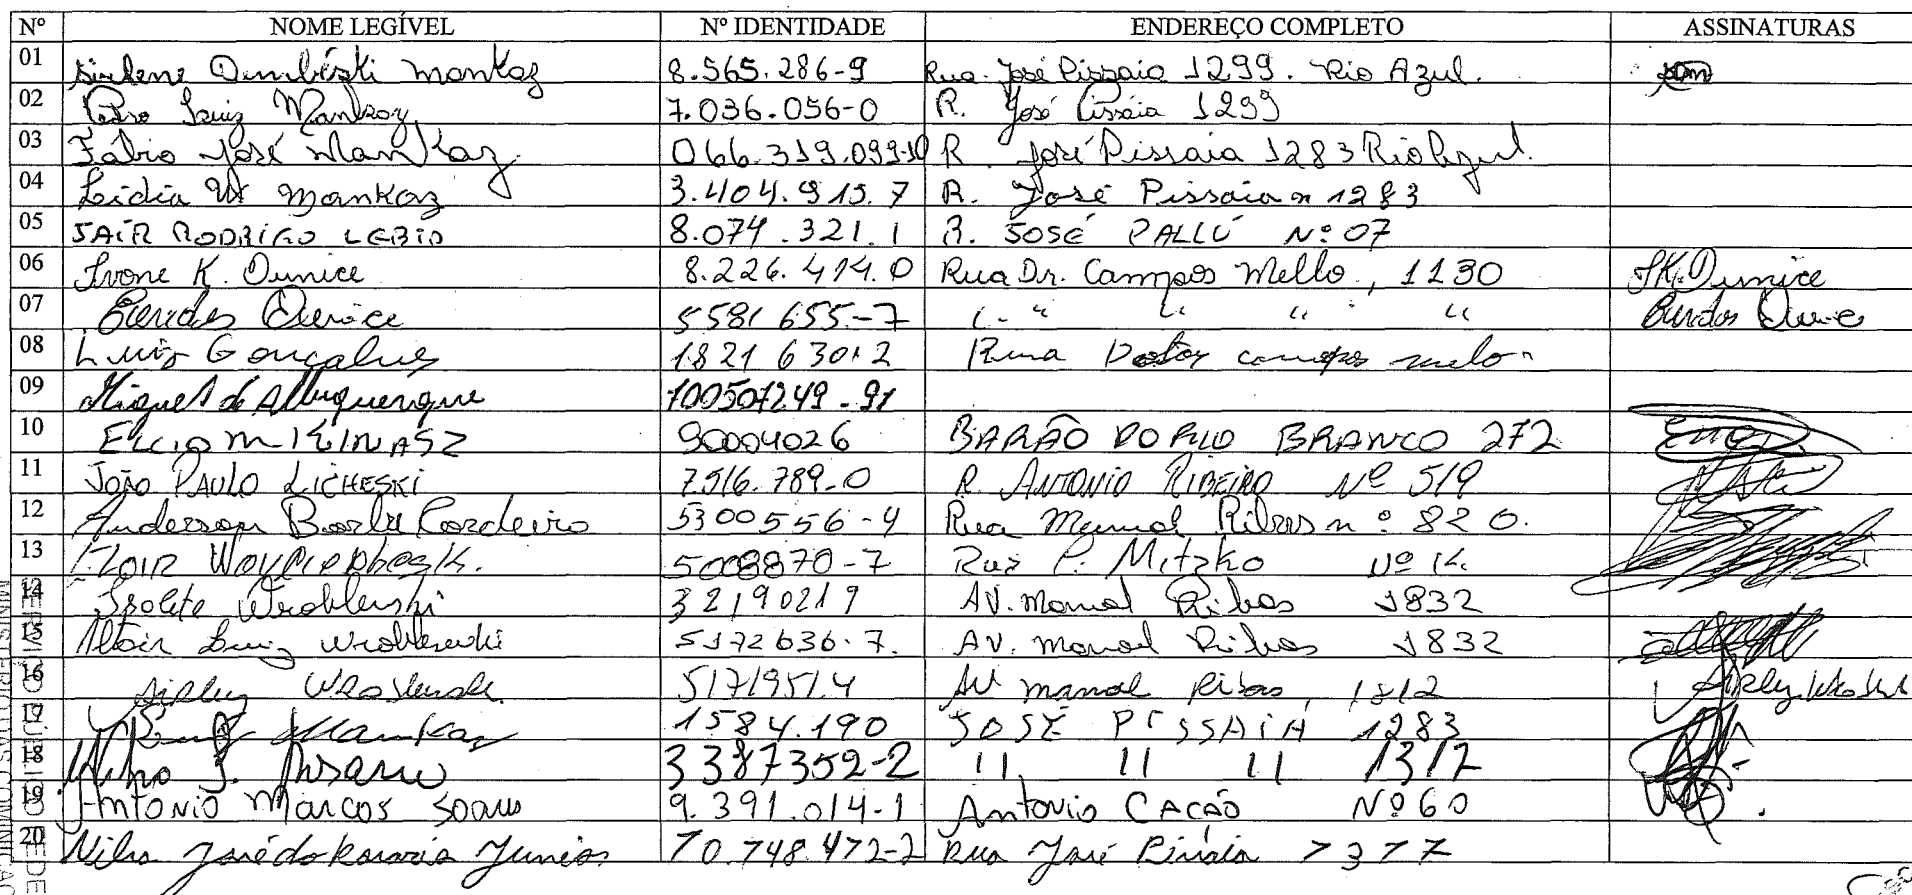 Nº NOME LEGÍVEL Nº IDENTIDADE ENDEREÇO COMPLETO ASSINATURAS
01 Sirlene Dembiski Mankaz 8.565.286-9 Rua. José Pissaia 1299. Rio Azul.
02 Pedro Luiz Mankaz 7.036.056-0 R. José Pissaia 1299
03 Fábio José Mankaz 066.319.099-10 R José Pissaia 1283 Rio Azul.
04 Lidia Mankaz 3.404.915.7 R. José Pissaia n 1283
05 JAIR RODRIGO LEBID 8.074.321.1 R. JOSÉ PALLÚ Nº 07
06 Ivone K. Dunice 8.226.414.0 Rua Dr. Campos Mello, 1130 I.K. Dunice
07 Eurides Dunice 5581 655-7 " " " " " Eurides Dunice
08 Luiz Gonçalves 1821 630.2 Rua Dotor campos melo
09 Miguel de Albuquerque 100507249-91
10 ELCIO MIKINASZ 90004026 BARÃO DO RIO BRANCO 272
11 JOÃO PAULO LICHESKI 7.516.789-0 R. ANTONIO RIBEIRO Nº 519
12 Anderson Cordeiro 5300556-4 Rua Manoel Ribas nº 820.
13 5008870-7 Rua P. Mitzko Nº
14 Isolete Wroblewski 32190219 AV. Manoel Ribas 1832
15 Altair Luiz Wroblewski 5172636-7. AV. Manoel Ribas 1832
16 Sirley 5171951.4 AV manoel Ribas, 1812 Sirley
17 Mankaz 1584.190 JOSÉ PISSAIA 1283
18 3387352-2 11 11 11 1317
19 ANTONIO MARCOS Soares 9.391.014-1 Antonio CACÃO Nº 60
20 Nilso José do Rosario Junior 10.748.472-2 Rua José Pissaia 1317